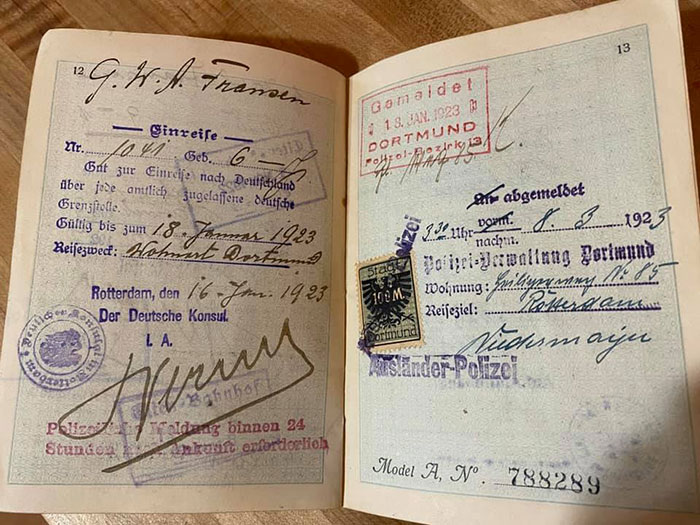 12
G. W. A. Fransen
Einreise
Nr. 1041 Geb. 6
Gut zur Einreise nach Deutschland
über jede amtlich zugelassene deutsche
Grenzstelle.
Gültig bis zum 18. Januar 1923
Reisezweck: Wohnort Dortmund
Rotterdam, den 16 Jan. 1923
Der Deutsche Konsul.
I. A.
Bahnhof
Polizeiliche Meldung binnen 24
Stunden nach Ankunft erforderlich
13
Gemeldet
18. JAN. 1923
DORTMUND
Polizei-Bezirk 13
abgemeldet
3 30 Uhr vorm. nachm. 8. 3 1923
Polizei-Verwaltung Dortmund
Wohnung: Heiligerweg Nr 85
Reiseziel: Rotterdam
Stadt
100 M.
Dortmund
Ausländer-Polizei
Model A, No. 788289